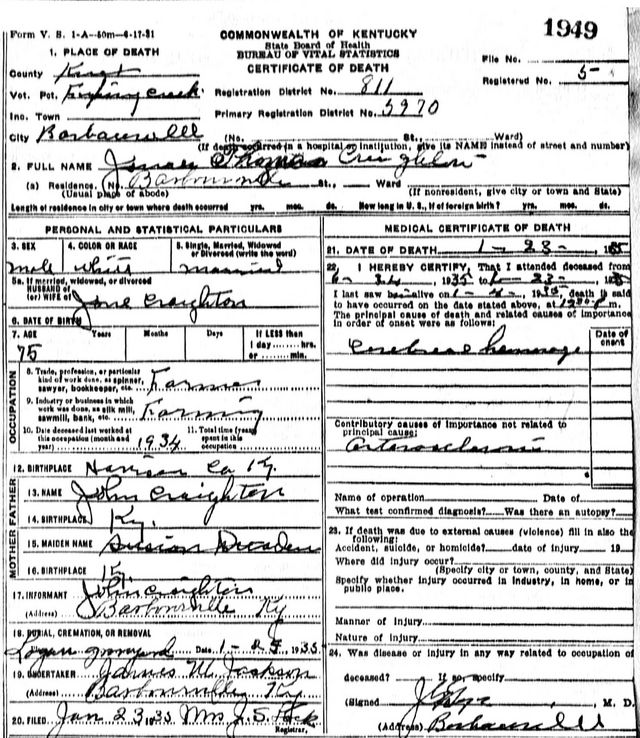 Form V. S. 1-A—50m—6-17-31
1949
COMMONWEALTH OF KENTUCKY
State Board of Health
BUREAU OF VITAL STATISTICS
CERTIFICATE OF DEATH
1. PLACE OF DEATH
File No.
Registered No. 5
County Knox
Vot. Pct.
Registration District No. 811
Inc. Town
Primary Registration District No. 5970
City Barbourville (No. St., Ward)
(If death occurred in a hospital or institution, give its NAME instead of street and number)
2. FULL NAME Thomas Creighton
(a) Residence. (No. Barbourville St., Ward
(Usual place of abode) (If nonresident, give city or town and State)
Length of residence in city or town where death occurred yrs. mos. ds. How long in U. S., if of foreign birth? yrs. mos. ds.
PERSONAL AND STATISTICAL PARTICULARS
3. SEX 4. COLOR OR RACE 5. Single, Married, Widowed or Divorced (write the word)
male white married
5a. If married, widowed, or divorced
HUSBAND of
(or) WIFE of Jane Creighton
6. DATE OF BIRTH
7. AGE Years Months Days If LESS than 1 day hrs. or min.
75
OCCUPATION
8. Trade, profession, or particular kind of work done, as spinner, sawyer, bookkeeper, etc. Farmer
9. Industry or business in which work was done, as silk mill, sawmill, bank, etc. Farming
10. Date deceased last worked at this occupation (month and year) 1934
11. Total time (years) spent in this occupation
12. BIRTHPLACE Harrison Co Ky.
MOTHER FATHER
13. NAME John Creighton
14. BIRTHPLACE Ky.
15. MAIDEN NAME
16. BIRTHPLACE
17. INFORMANT John Creighton
(Address) Barbourville Ky
18. BURIAL, CREMATION, OR REMOVAL
Logan graveyard Date 1-25 1935
19. UNDERTAKER James M. Jackson
(Address) Barbourville Ky
20. FILED Jan 23 1935 Mrs J. S.
Registrar.
MEDICAL CERTIFICATE OF DEATH
21. DATE OF DEATH 1-23-, 1935
22. I HEREBY CERTIFY, That I attended deceased from
1935 to 1-23-, 1935
I last saw h alive on 1935, death is said
to have occurred on the date stated above, at m.
The principal cause of death and related causes of importance
in order of onset were as follows:
Date of onset
Cerebral hemorage
Contributory causes of importance not related to
principal cause:
arterosclerosis
Name of operation Date of
What test confirmed diagnosis? Was there an autopsy?
23. If death was due to external causes (violence) fill in also the
following:
Accident, suicide, or homicide? date of injury 19
Where did injury occur?
(Specify city or town, county, and State)
Specify whether injury occurred in industry, in home, or in
public place.
Manner of Injury
Nature of Injury
24. Was disease or injury in any way related to occupation of
deceased? If so, specify
(Signed) M. D.
(Address) Barbourville